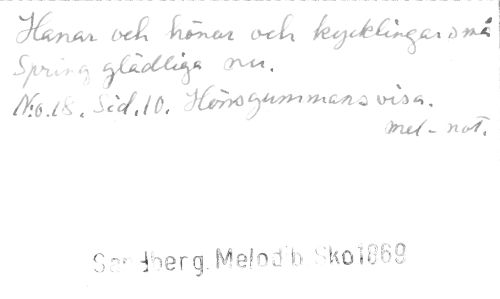 Hanar och hönor och kycklingar små
Spring glädliga nu.
N:o.18. Sid.10. Hönsgummans visa.
mel-not.
Sandberg. Melod b Sko 1869